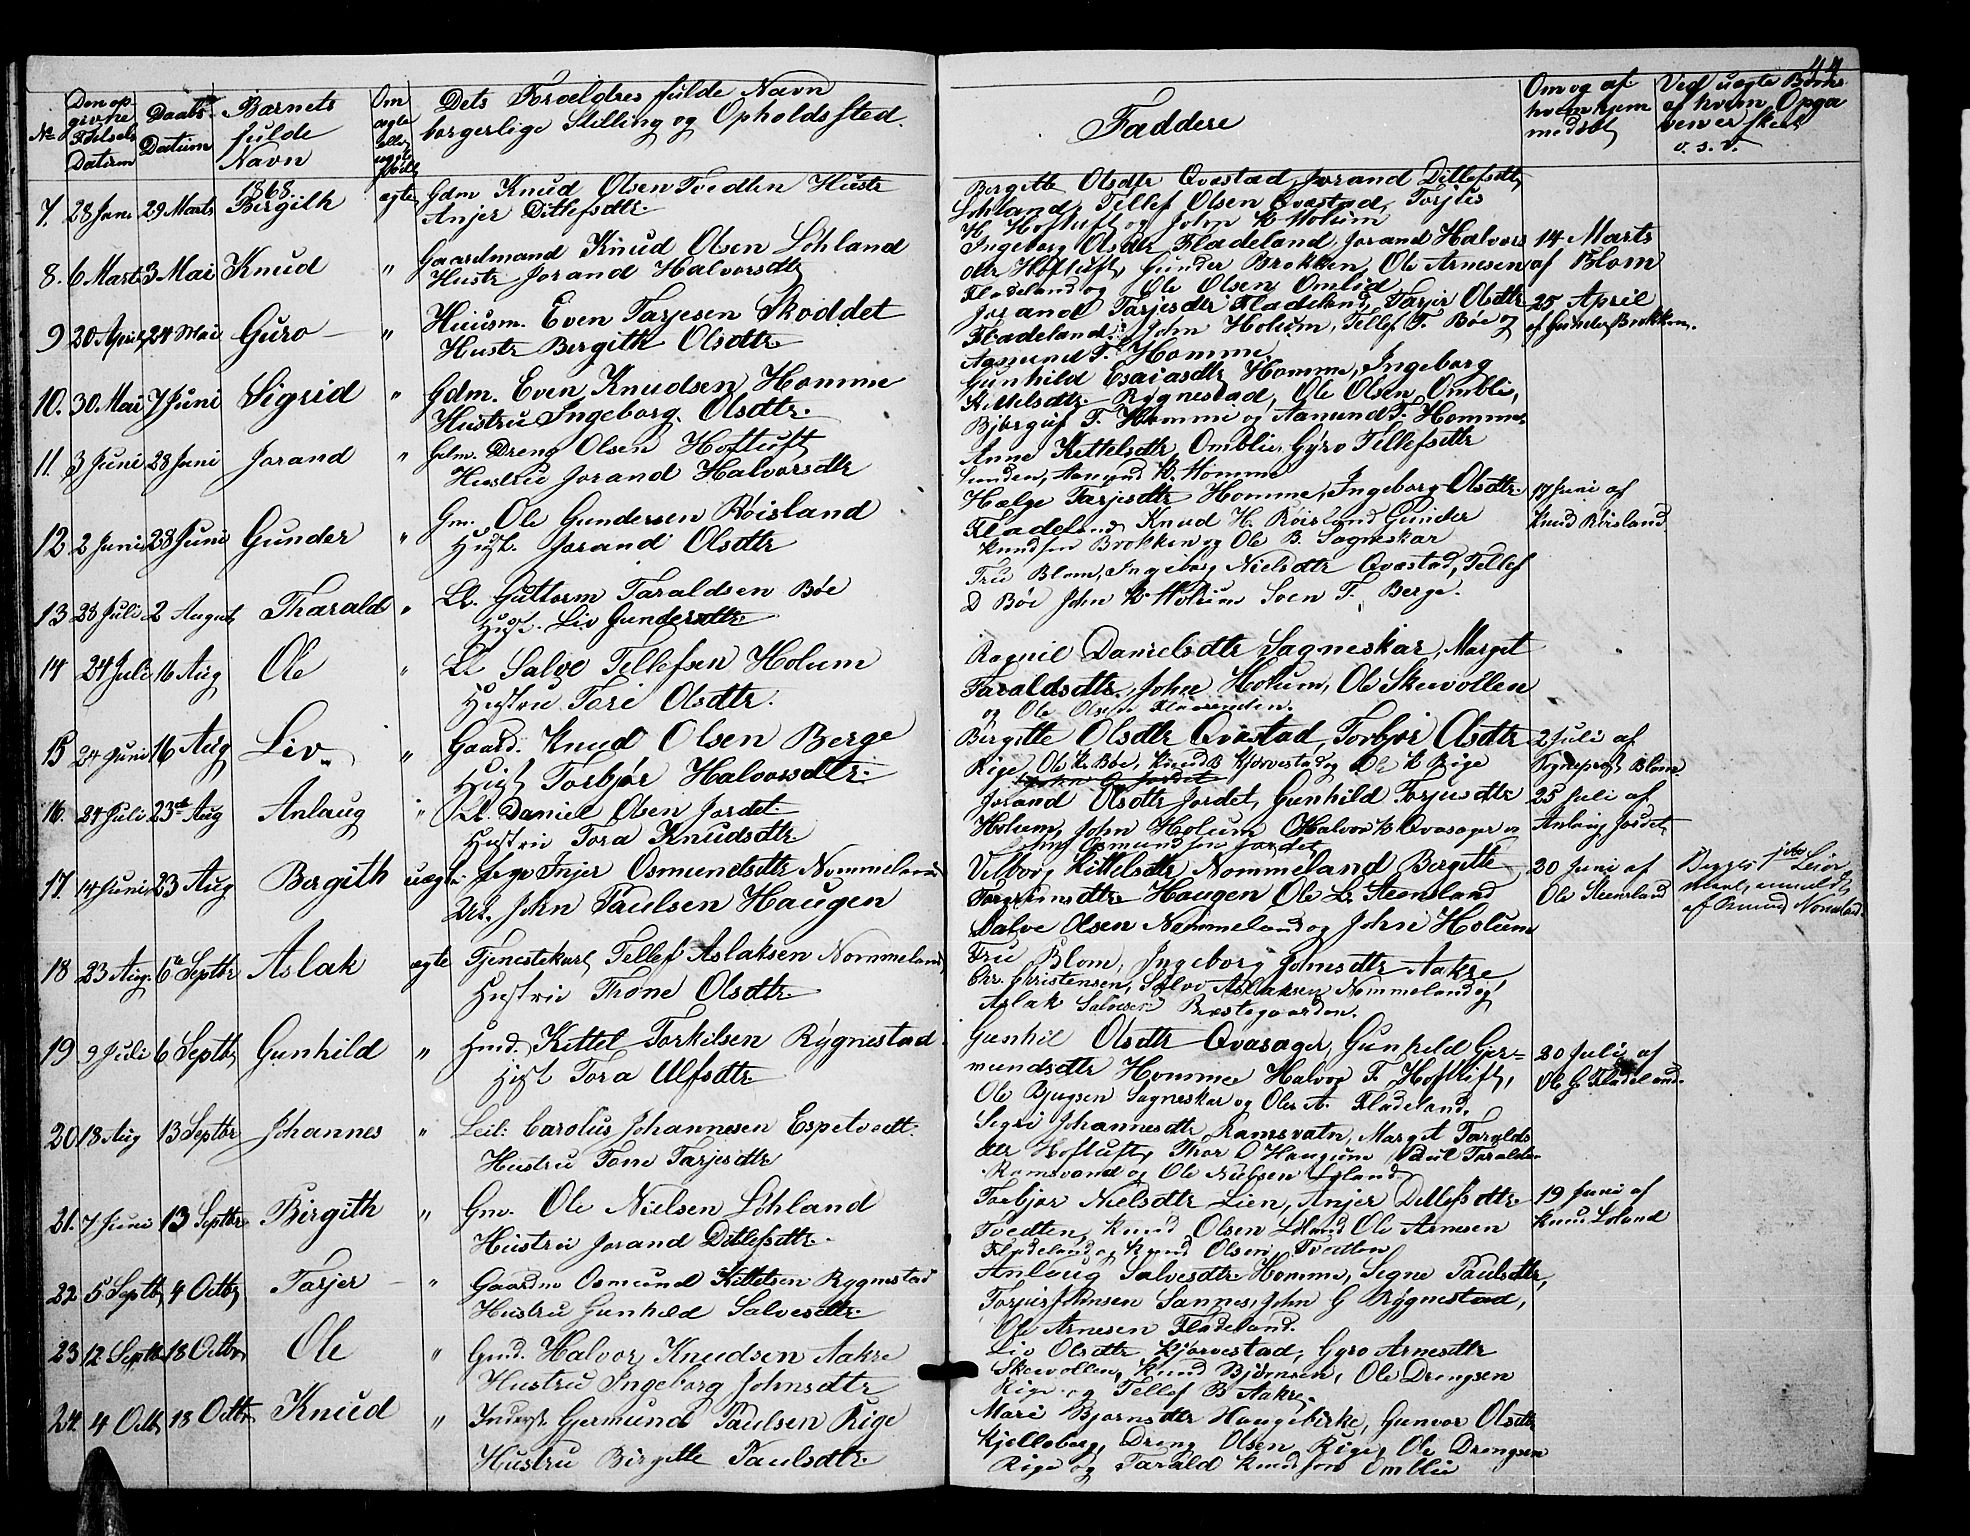 44
No
Den opgivne Fødsels Datum
Daabs Datum
Barnets fulde Navn
Om ægte eller uægte født
Dets Forældres fulde Navn borgerlige Stilling og Opholdssted.
Faddere
Om og af hvem hjemmedøbt
Ved uægte Børns af hvem Opgaven er skeet v. s. v.
1868.
7. 28 Jan. 29 Marts Bergith ægte Gdm Knud Olsen Tvedten Hustr
Anjer Ditlefsdtr.
Bergitte Olsdtr Qvæstad, Jorand Ditlefsdtr
Løhland, Tellef Olsen Qvæstad, Torjus
H. Hoftuft og John K Holum
8. 6 Marts 3 Mai Knud " Gaardmand Knud Olsen Løhland
Hustr Jorand Halvorsdtr
Ingeborg Olsdtr Fladeland, Jorand Halvors
dtr Hoftuft, Gunder Brokken, Ole Arnesen
Fladeland og Ole Olsen Omlid
14 Marts
af Blom
9 20 April 24 Mai Guro " Huusm. Even Tarjesen Skoddet
Hustr Bergith Olsdtr.
Jorand Tarjesdtr Fladeland, Tarjer Olsdtr
Fladeland, John Holum, Tellef T. Bøe og
Aamund T. Homme.
25 April
af Gunder Brokken.
10. 30. Mai 7 Juni Sigrid " Gdm. Even Knudsen Homme
Hustru Ingeborg Olsdtr.
Gunhild Esaiasdtr Homme, Ingeborg
Kittilsdtr Rygnestad, Ole Olsen Ombli,
Bjørguf T. Homme og Aamund T. Homme
11. 3 Juni 28 Juni Jorand " Gdm. Dreng Olsen Hoftuft
Hustru Jorand Halvorsdtr
Anne Kettelsdtr Omblie, Gyro Tellefsdtr
Sunden, Aamund K. Homme
12 2 Juni 28 Juni Gunder " Gm. Ole Gundersen Røisland
Hust. Jorand Olsdtr
Hælge Tarjesdtr Homme, Ingeborg Olsdtr
Fladeland Knud H. Røisland Gunder
Knudsen Brokken og Ole B. Sagneskar
17 Juni af
Knud Røisland
13 28 Juli 2 August Tharald " Ll. Guttorm Taraldsen Bøe
Hust. Liv Gundersdtr.
Fru Blom, Ingeborg Nielsdtr Qvæstad, Tellef
D Bøe John K Holum Sven T. Berge.
14 24 Juli 16 Aug Ole " Ll Salve Tellefsen Holum
Hustru Tore Olsdtr.
Ragnil Danielsdtr Sagneskar, Marget
Taraldsdtr, John Holum, Ole Skevollen
og Ole Olsen
15 24 Juni 16 Aug Liv " Gaard. Knud Olsen Berge
Hust Torbjør Halvorsdtr.
Birgitte Olsdtr Qvæstad, Torbjør Olsdtr
Rige, Ole K. Bøe, Knud B Kjørvestad og Ole K Rige
2 Juli af
Sogneprest Blom
16. 24 Juli 23de Aug Anlaug " Ll. Daniel Olsen Jordet
Hustru Tora Knudsdtr
Jorand Olsdtr Jordet, Gunhild Torjusdtr
Holum, John Holum Halvor K Qvasager og
John Osmundsen Jordet
25 Juli af
Anlaug Jordet
17. 14 Juni 23 Aug Bergith uægte Pige Anjer Osmundsdtr Nommeland
Uk. John Paulsen Haugen
Velborg Kittelsdtr Nommeland Bergitte
Torgrimsdtr Haugen Ole L. Steensland
Salve Olsen Nommeland og John Holum
20 Juni af
Ole Steensland
af Osmund Nomeland.
18 23 Aug. 6te Septbr Aslak ægte Tjenestekarl Tellef Aslaksen Nommeland
Hustru Thone Olsdtr.
Fru Blom, Ingeborg Johnsdtr Aakre
Chr. Christensen, Salve Aslaksen Nommeland og
Aslak Salvesen Præstegaarden.
19 9 Juli 6 Septbr Gunhild " Gmd. Kittel Torkilsen Rygnestad
Hust Tora Ulfsdtr
Gunhil Olsdtr Qvasager, Gunhild Ger=
mundsdtr Homme Halvor T. Hoftuft,
Ole Bjugsen Sagneskar og Ole A. Fladeland.
20 Juli af
Ole G. Fladeland.
20 18 Aug 13 Septbr Johannes " Leil. Carolus Johannesen Espetvedt.
Hustru Tone Tarjesdtr
Sigri Johannesdtr Ramsvatn, Marget Taralds
dtr Hoftuft, Thor O Haugum Paul Taraldsen
Ramsvand og Ole Nielsen Løland
21. 7 Juni 13 Septbr Birgith " Gm. Ole Nielsen Løhland
Hustru Jorand Ditlefsdtr.
Torbjør Nielsdtr Lien, Anjer Ditlefsdtr
Tvedten, Knud Olsen Løland Ole Arnesen
Fladeland og Knud Olsen Tvedten
19 Juni af
Knud Løland
22 5 Septbr 4 Octbr Tarjer " Gaardm Osmund Kittelsen Rygnestad
Hustru Gunhild Salvesdtr.
Anlaug Salvesdtr Homme, Signe Paulsdtr,
Torjus Johnsen Sannes, John G Rygnestad,
Ole Arnesen Fladeland.
23 12 Septbr 18 Octbr Ole " Gmd. Halvor Knudsen Aakre
Hustru Ingeborg Johnsdtr
Liv Olsdtr Kjørvestad, Gyro Arnesdtr
Skevollen, Knud Bjørnsen, Ole Drengsen
Rige og Tellef B Aakre.
24 4 Octb 18 Octbr Knud " Inderst. Germund Paulsen Rige
Hustru Birgitte Paulsdtr.
Mari Bjørnsdtr Haugebirke, Gunvor Olsdtr
Kjelleberg, Dreng Olsen Rige, Ole Drengsen
Rige og Tarald Knudsen Omblie